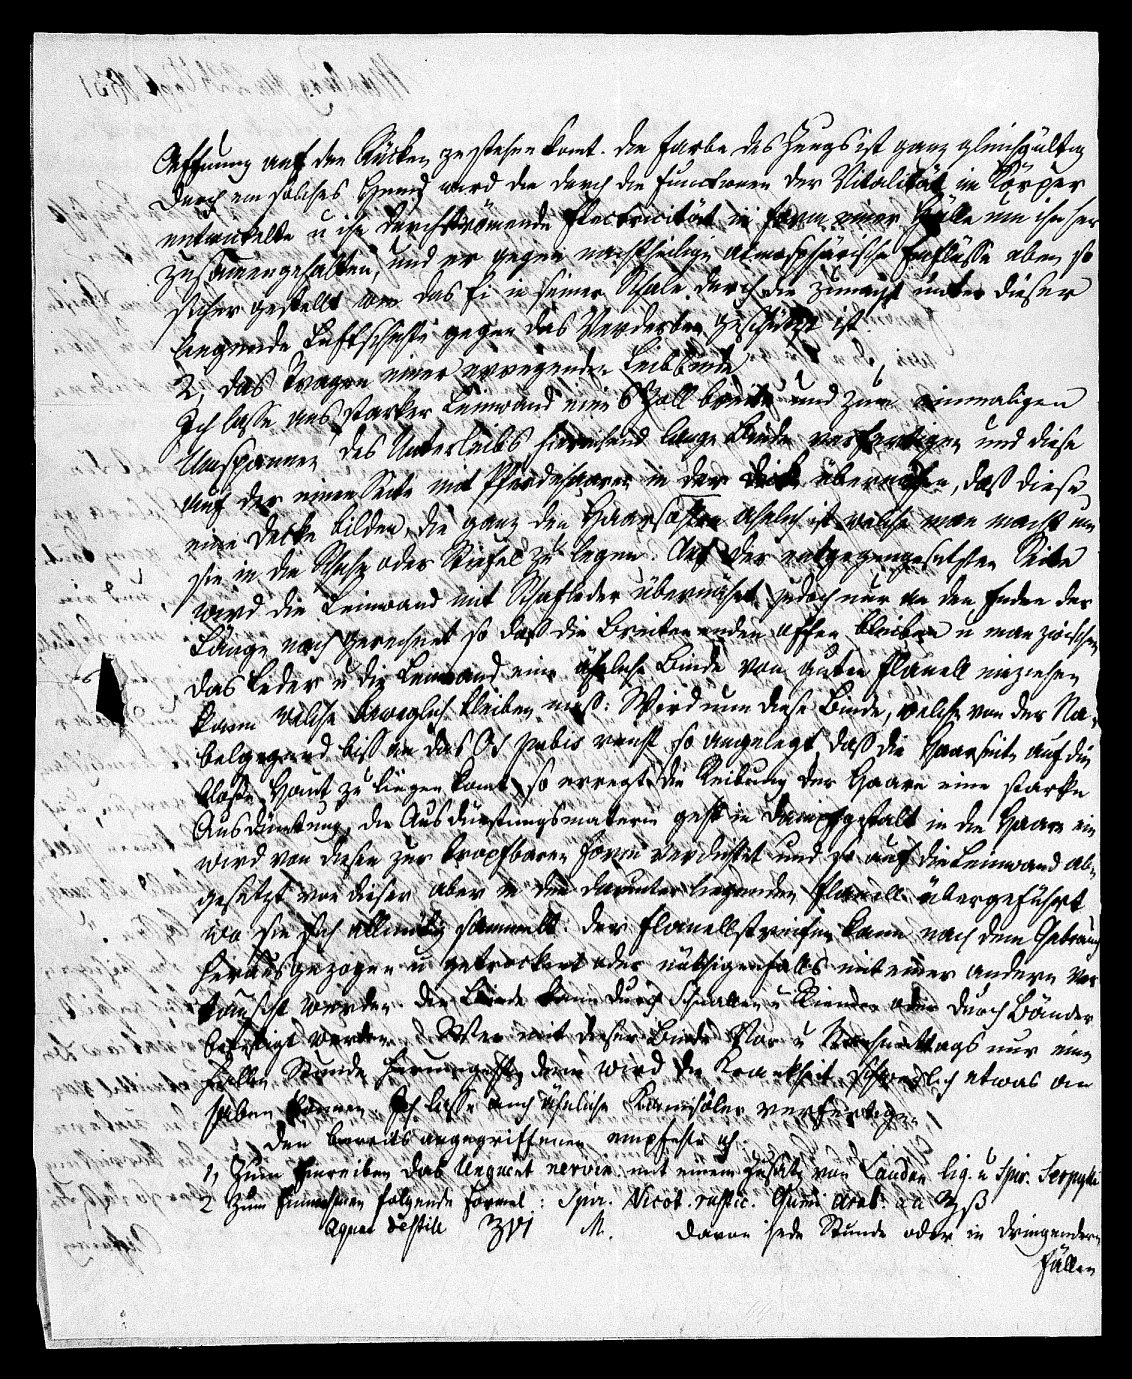 Oeffnung auf den Rücken zu stehen komt. Die Farbe des Zeugs ist ganz gleichgültig
Durch ein solches Hemd wird die durch die Functionen der Vitalität im Körper
entwickelte u ihn durchströmende Electricität in Form einer Hülle um ihn her
zusamengehalten, und er gegen nachtheilige atmosphärische Einflüsse eben so
sicher gestellt wie das Ei in seiner Schale durch die zunächst unter dieser
liegende Luftschichte gegen das Verderben geschützt ist
2, das Tragen einer erregenden Leibbinde
Ich lasse aus starker Leinwand eine 6 Zoll breite und zum einmaligen
Umspannen des Unterleibs hinreichend lange Binde verfertigen und diese
auf der einen Seite mit Pferdehaaren in der Dicke übernähen, daß diese
eine Decke bilden, die ganz den Haarsohlen ähnlich ist welche man macht um
sie in die Schuhe oder Stiefel zu legen. Auf der entgegengesetzten Seite
wird die Leinwand mit Schafleder übernäht, jedoch nur an den Enden der
Länge nach gerechnet so daß die Breitenenden offen bleiben u man zwischen
das Leder u die Leinwand eine ähnliche Binde von gutem Flanell einziehen
kann welche beweglich bleiben muß: Wird nun diese Binde, welche von der Na-
belgegend biß an das Os pubis reicht so angelegt, daß die Haarseite auf die
bloße Haut zu liegen komt, so erregt die Reibung der Haare eine starke
Ausdünstung, die Ausdünstungsmaterie geht in Dampfgestalt in die Haare ein
wird von diesen zur tropfbaren Form verdichtet und so auf die Leinwand ab-
gesetzt von dieser aber in den darunter liegenden Flanell übergeführt
wo sie sich allmälig sammelt. Der Flanellstreifen kann nach dem Gebrauch
herausgezogen u getrocknet oder nöthigenfalls mit einem andern ver
tauscht werden. Die Binde kann durch Schnallen u Riemen oder durch Bänder
befestigt werden. Wer mit dieser Binde Vor u Nachmittags nur eine
halbe Stunde herumgeht, dem wird die Krankheit schwerlich etwas an
haben können. Ich lasse auch ähnliche Kamisöler verfertigen.
Den bereits angegriffenen empfehle ich
1, Zum Einreiben das Unguent nervin. mit einem Zusatz von Laudan liq. u Spir. Serpylli
2 Zum Einnehmen folgende Formel: Spir. Nicot. rustic. Gumi Arab. aa ʒß
Aquae destill ʒvi M. Davon jede Stunde oder in dringendern
Fällen